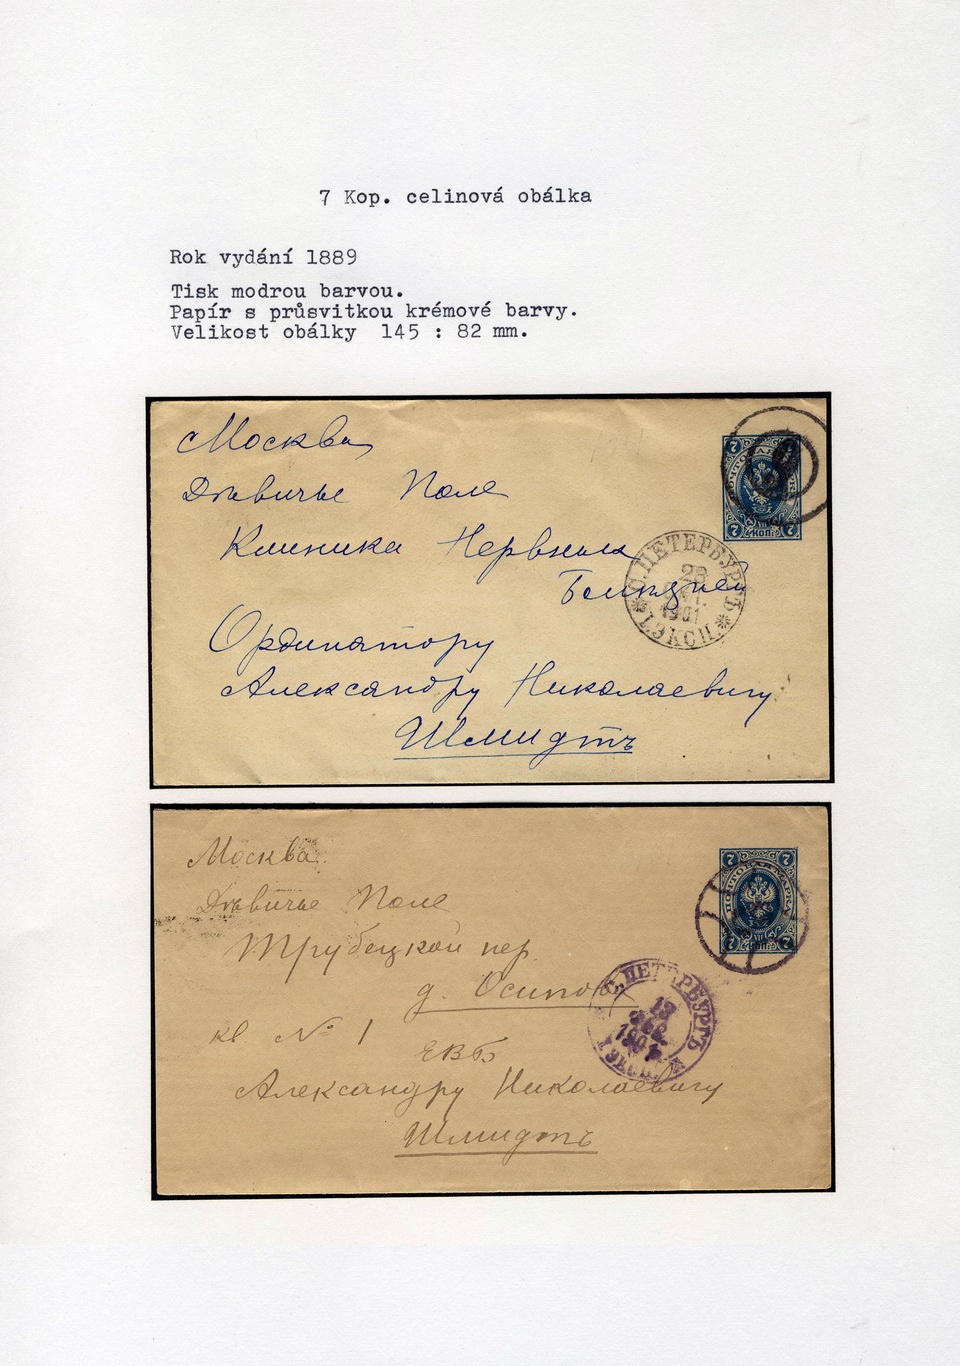 7 Kop. celinová obálka
Rok vydání 1889
Tisk modrou barvou.
Papír s průsvitkou krémové barvy.
Velikost obálky 145 : 82 mm.
Москва
Дѣвичье Поле
Клиника Нервныхъ
Болѣзней
Ординатору
Александру Николаевичу
Шмидтъ
7 7
ПОЧТОВАЯ МАРКА
7 КОП. 7
С.ПЕТЕРБУРГЪ
28
1901
1.ЭКСП.
Москва
Дѣвичье Поле
Трубецкой пер.
д. Осипова
кв № 1
ЕВБ
Александру Николаевичу
Шмидтъ
7 7
ПОЧТОВАЯ МАРКА
7 КОП. 7
С.ПЕТЕРБУРГЪ
13
ФЕВ.
1901
1 ЭКСП.